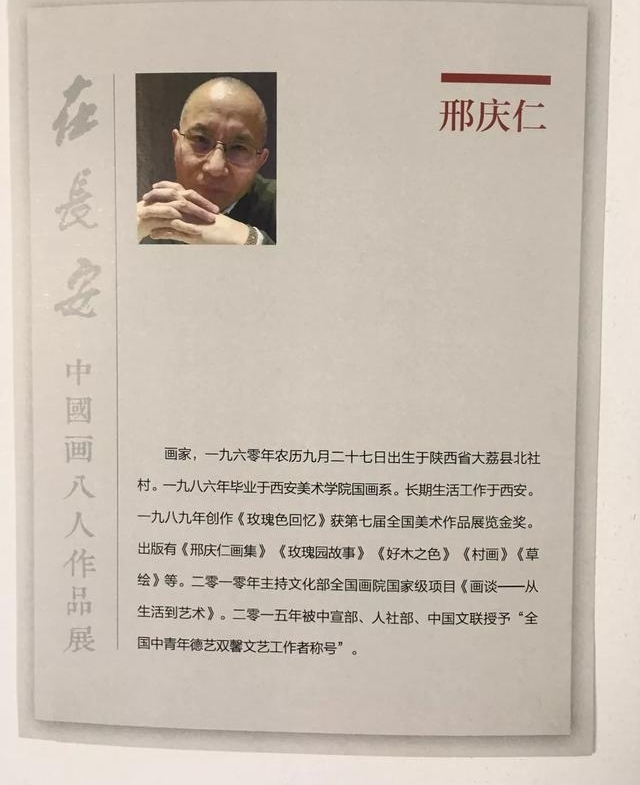 在長安
中國画八人作品展
邢庆仁
画家，一九六零年农历九月二十七日出生于陕西省大荔县北社
村。一九八六年毕业于西安美术学院国画系。长期生活工作于西安。
一九八九年创作《玫瑰色回忆》获第七届全国美术作品展览金奖。
出版有《邢庆仁画集》《玫瑰园故事》《好木之色》《村画》《草
绘》等。二零一零年主持文化部全国画院国家级项目《画谈——从
生活到艺术》。二零一五年被中宣部、人社部、中国文联授予“全
国中青年德艺双馨文艺工作者称号”。